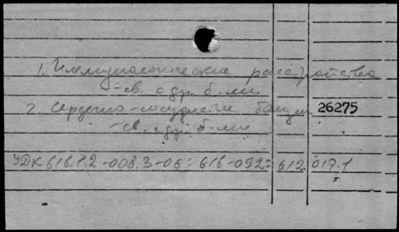 1. Иммунологические расстройства
-св. с др. б-ми
2. Сердечно-сосудистые 26275
-св. с др. б-ми
УДК 616.12-008.3-06:616-092:612.017.1